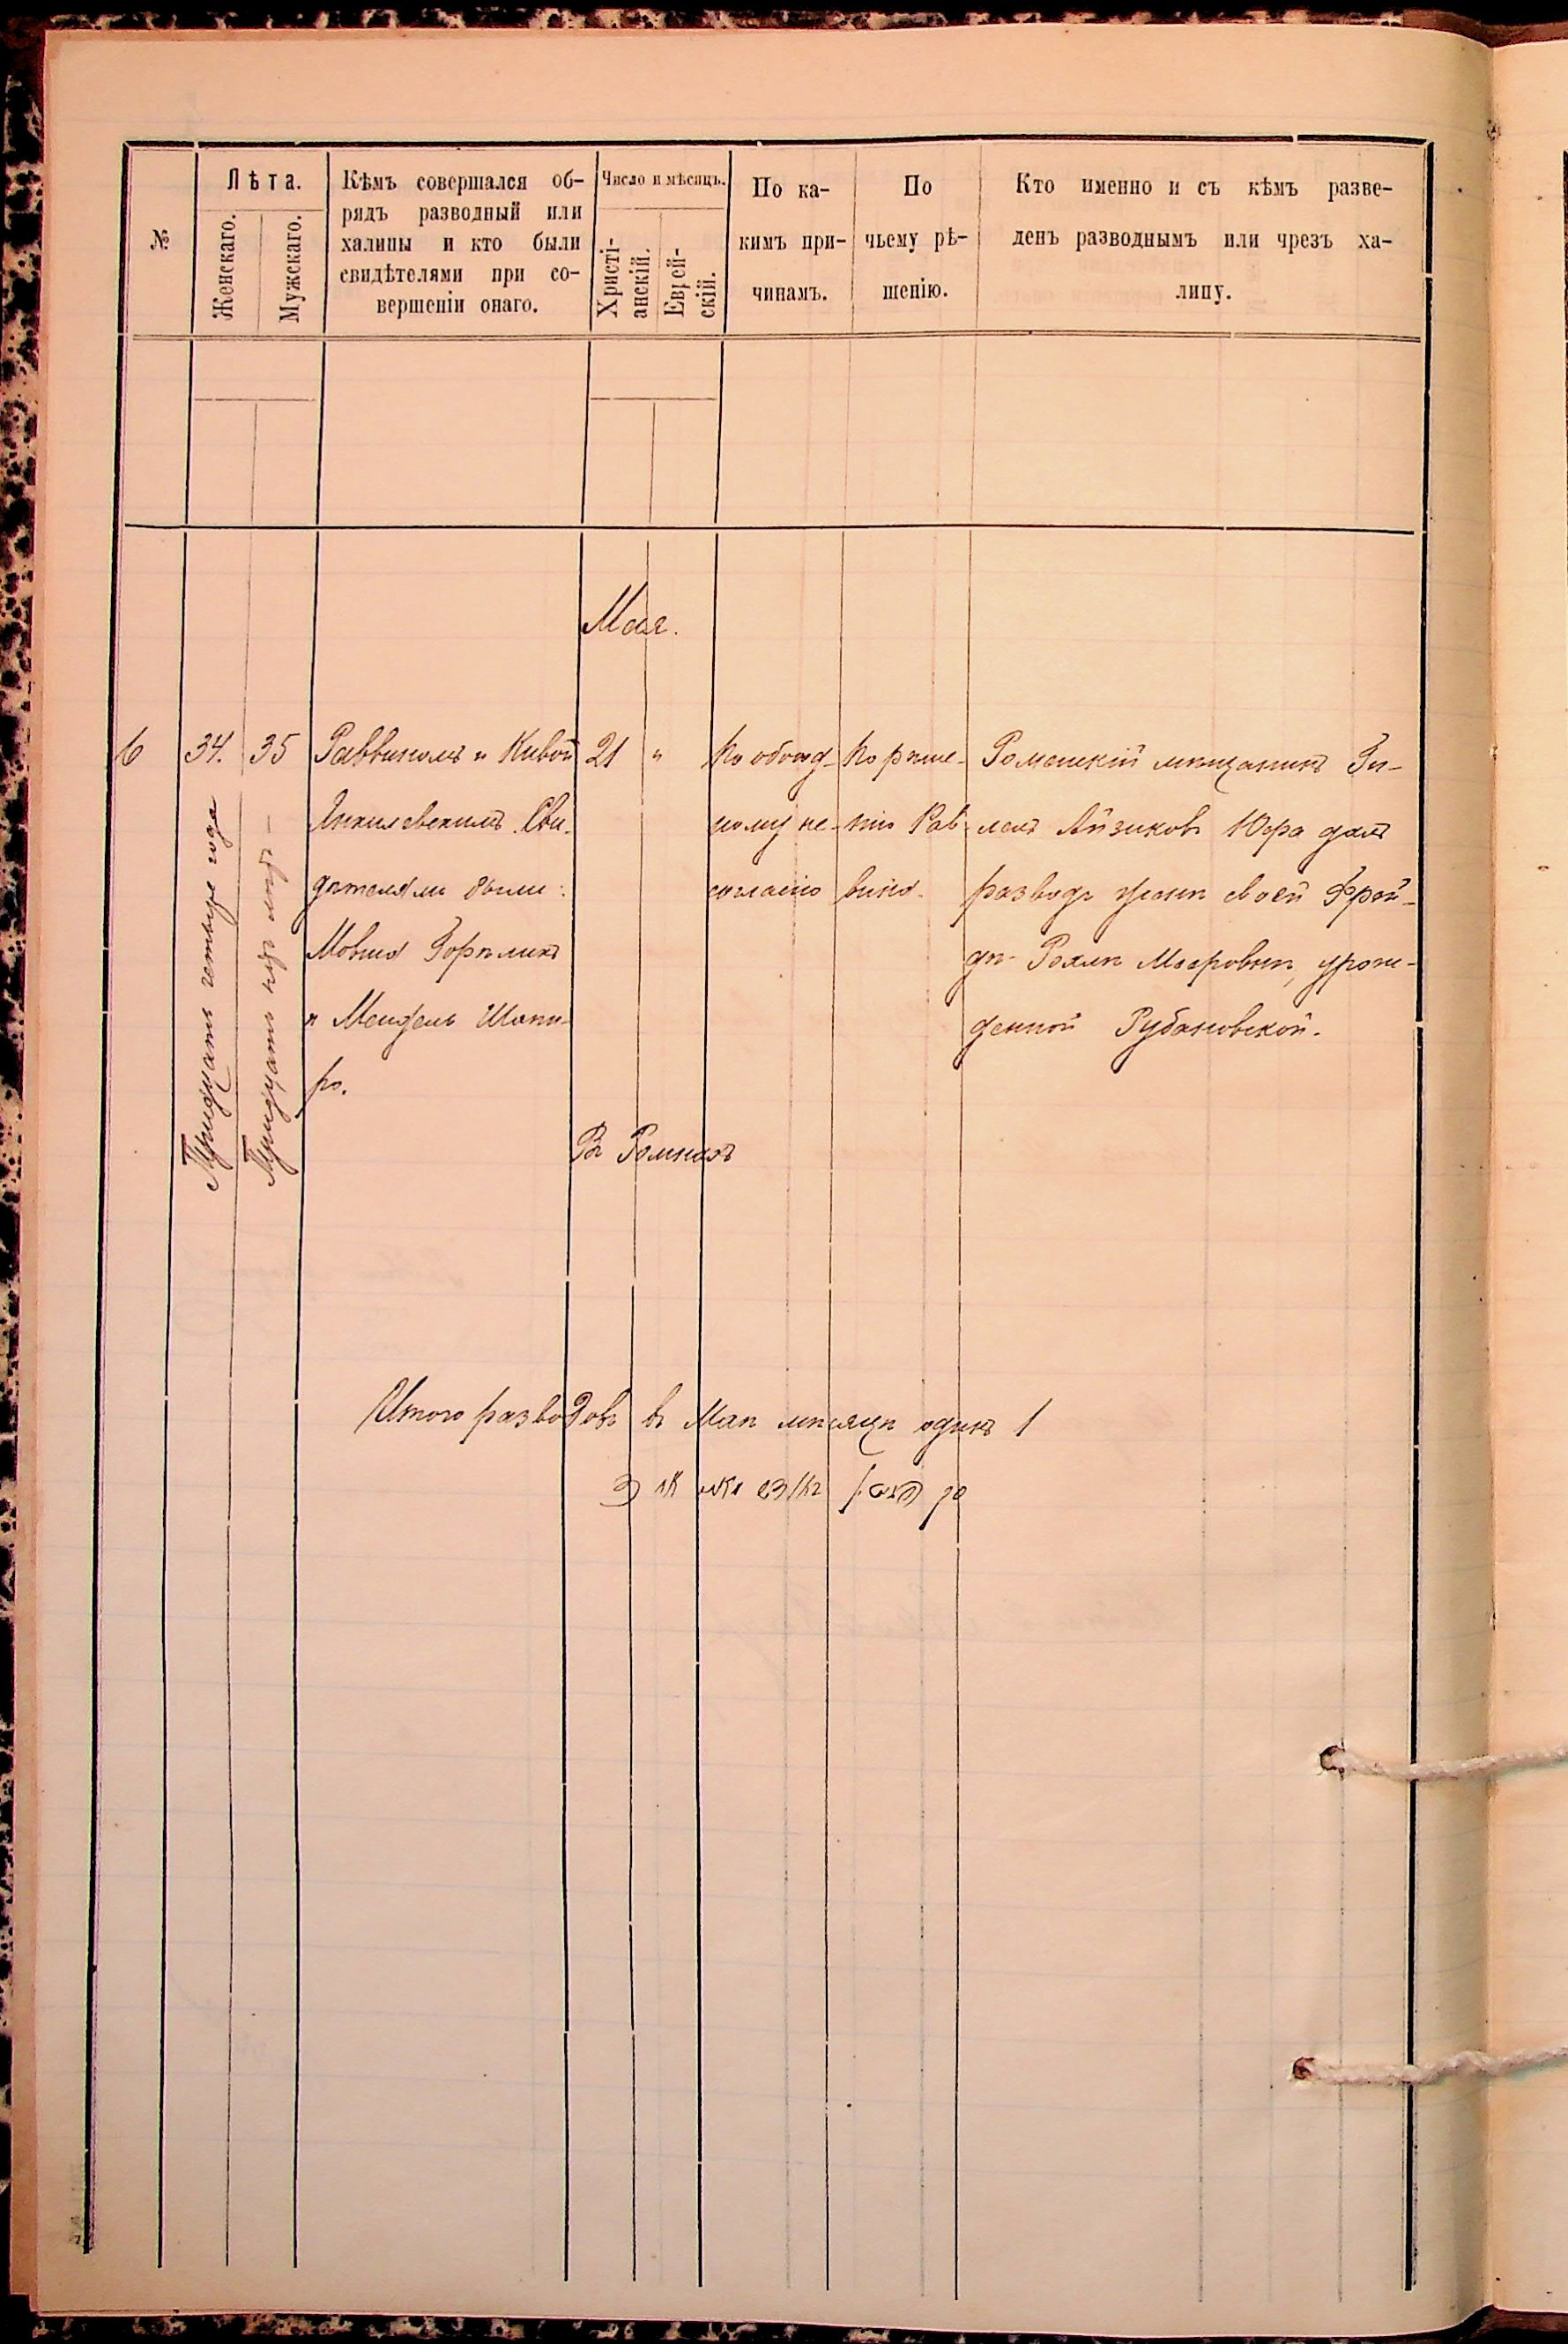 №
Лѣта.
Женскаго.
Мужскаго.
Кѣмъ совершался об-
рядъ разводный или
халицы и кто были
свидѣтелями при со-
вершеніи онаго.
Число и мѣсяцъ.
Христі-
анскій.
Еврей-
скій.
По ка-
кимъ при-
чинамъ.
По
чьему рѣ-
шенію.
Кто именно и съ кѣмъ разве-
денъ разводнымъ или чрезъ ха-
лицу.
Мая.
6
34.
Тридцать четыре года
35
Тридцать пять лѣтъ —
Раввиномъ и Кивой
Янкилевскимъ. Сви-
дѣтелями были:
Мовша Горѣликъ
и Мендель Шапи-
ро.
21
"
По обоюд-
ному не-
согласію
По рѣше-
нію Рав-
вина.
Роменскій мѣщанинъ
Айзиковъ Юфа далъ
разводъ женѣ своей Фрей-
дѣ- Рохлѣ Мееровнѣ, урож-
денной Рубановской.
Въ Ромнахъ
Итого разводовъ въ Маѣ мѣсяцѣ одинъ 1